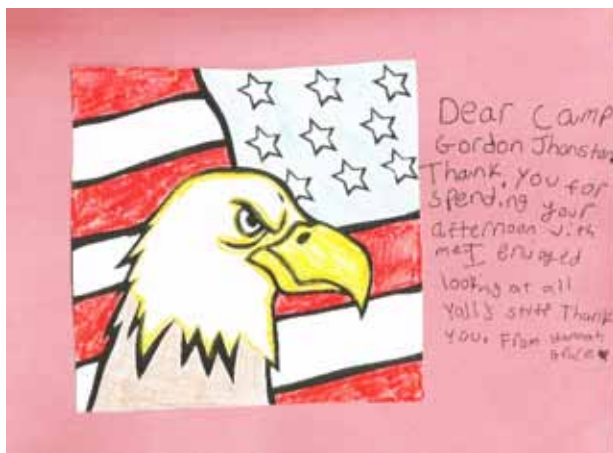 Dear Camp
Gordon Jhonston
Thank, you for
spending your
afternoon with
me I enjoyed
looking at all
yall's stuff Thank
you. From Hannah
Grace